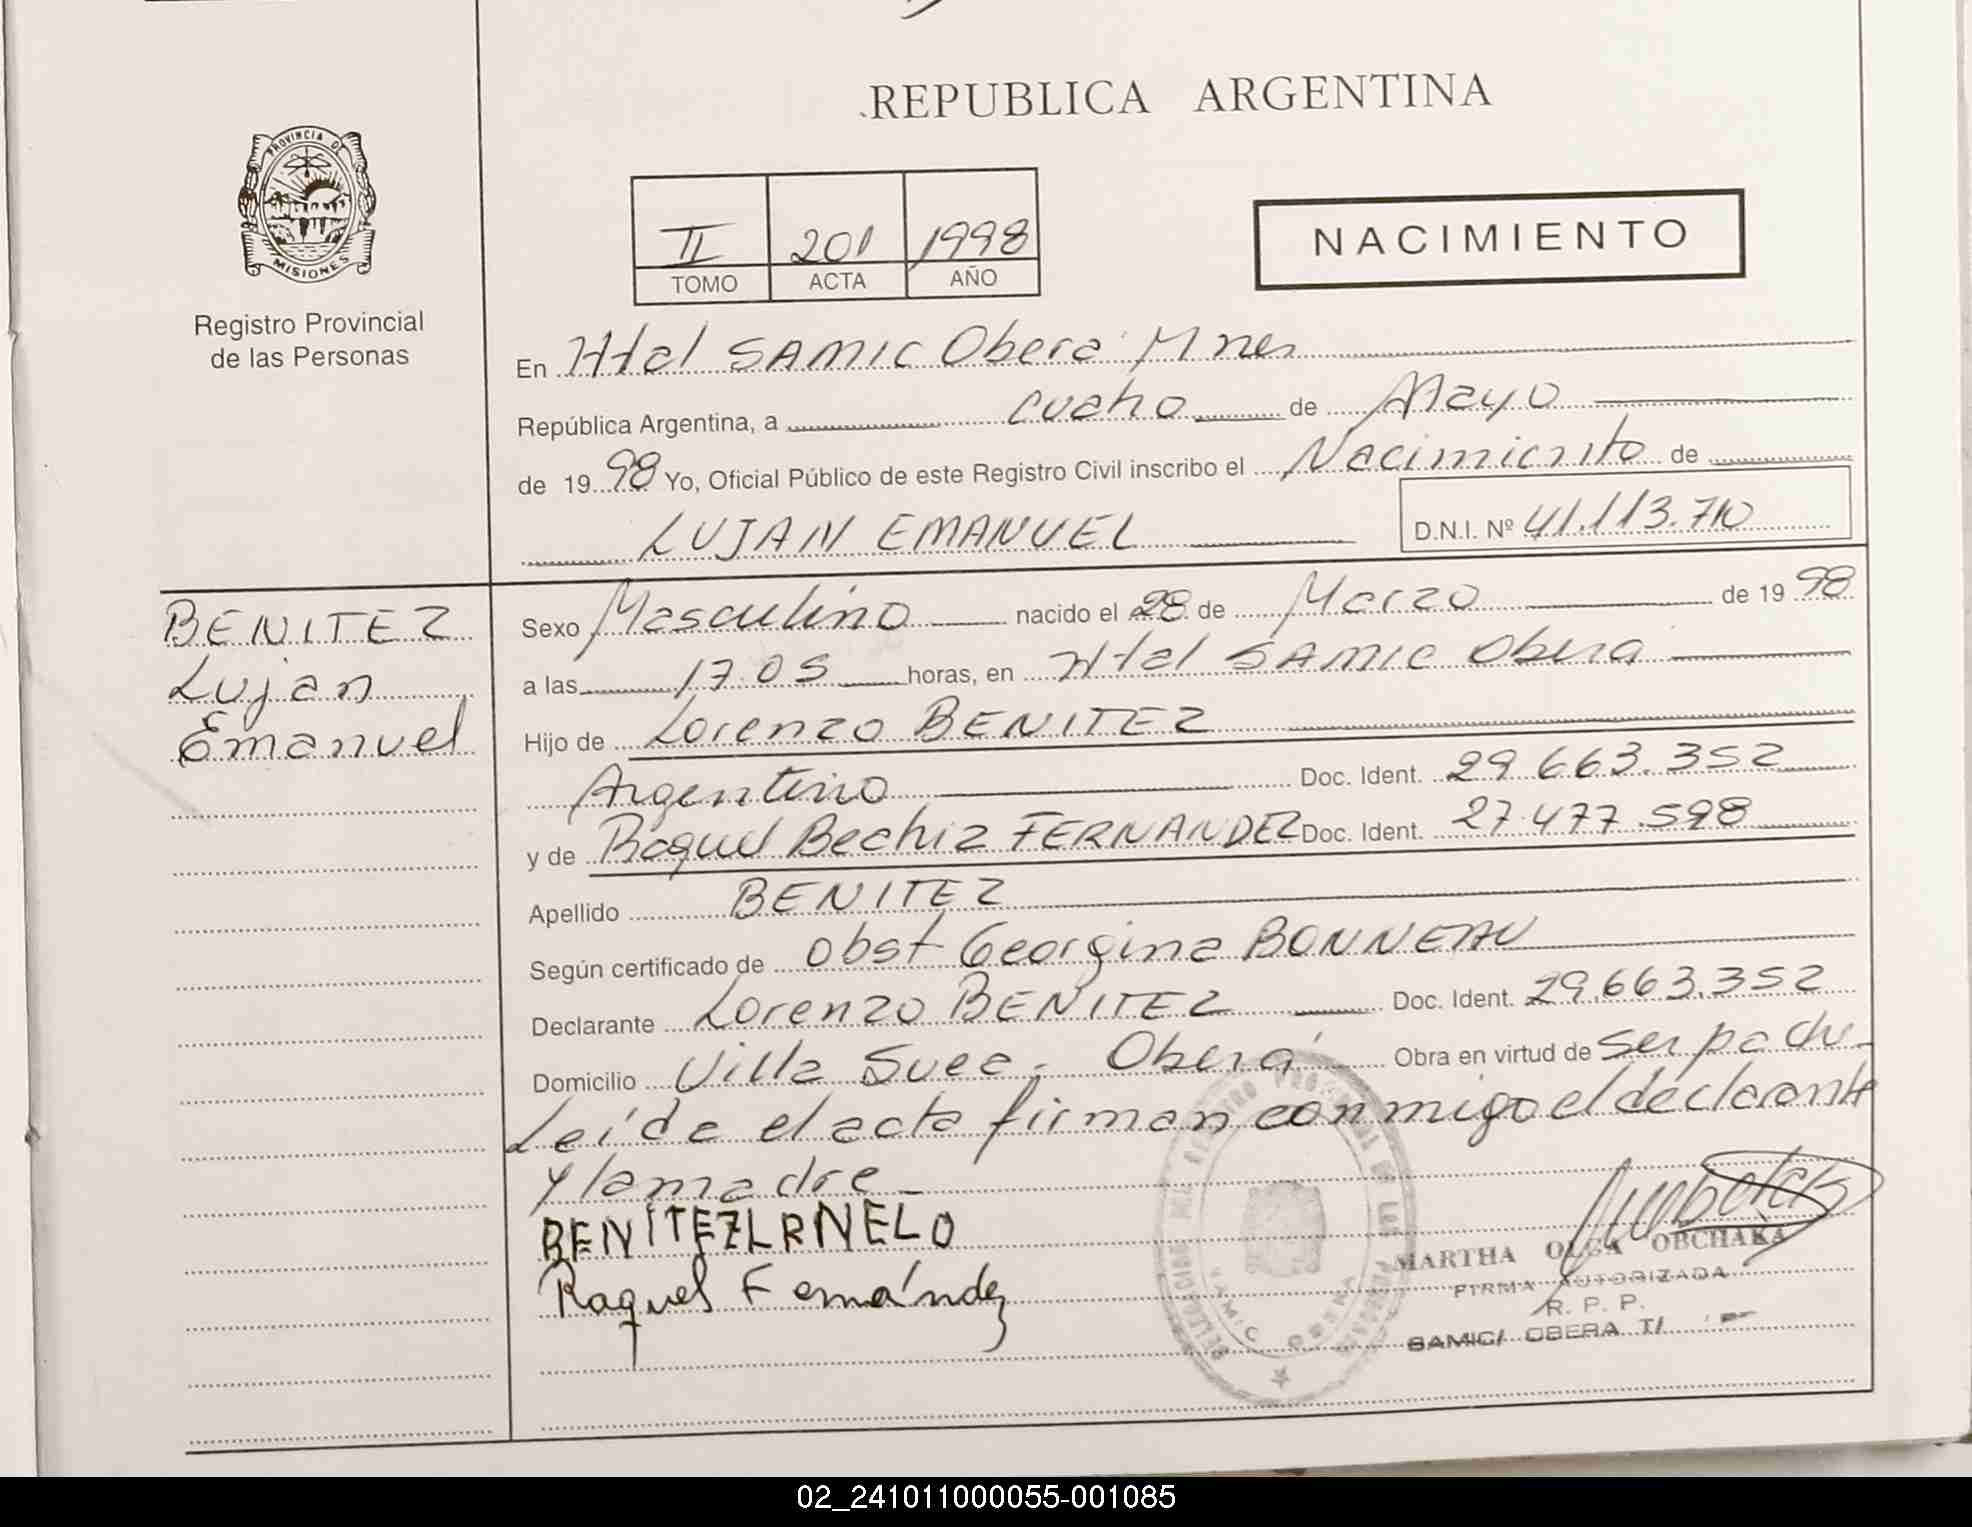 REPUBLICA ARGENTINA
PROVINCIA DE
MISIONES
Registro Provincial
de las Personas
II 201 1998
TOMO ACTA AÑO
NACIMIENTO
En Htal SAMIC Obera Mnes
República Argentina, a cuatro de Mayo
de 1998 Yo, Oficial Público de este Registro Civil inscribo el Nacimiento de
LUJAN EMANUEL D.N.I. Nº 41.113.710
BENITEZ
Lujan
Emanuel
Sexo Masculino nacido el 28 de Marzo de 1998
a las 17.05 horas, en Htal SAMIC Obera
Hijo de Lorenzo BENITEZ
Argentino Doc. Ident. 29.663.352
y de Raquel Beatriz FERNANDEZ Doc. Ident. 27.477.598
Apellido BENITEZ
Según certificado de Obst Georgina BONNEAU
Declarante Lorenzo BENITEZ Doc. Ident. 29.663.352
Domicilio Villa Suec. Oberá Obra en virtud de ser padre
Leída el acta firman conmigo el declarante
y la madre
BENITEZLRNELO
Raquel Fernández
MARTHA OLGA OBCHAKA
FIRMA AUTORIZADA
R. P. P.
SAMIC/ OBERA T/
SAMIC OBERA
02_241011000055-001085